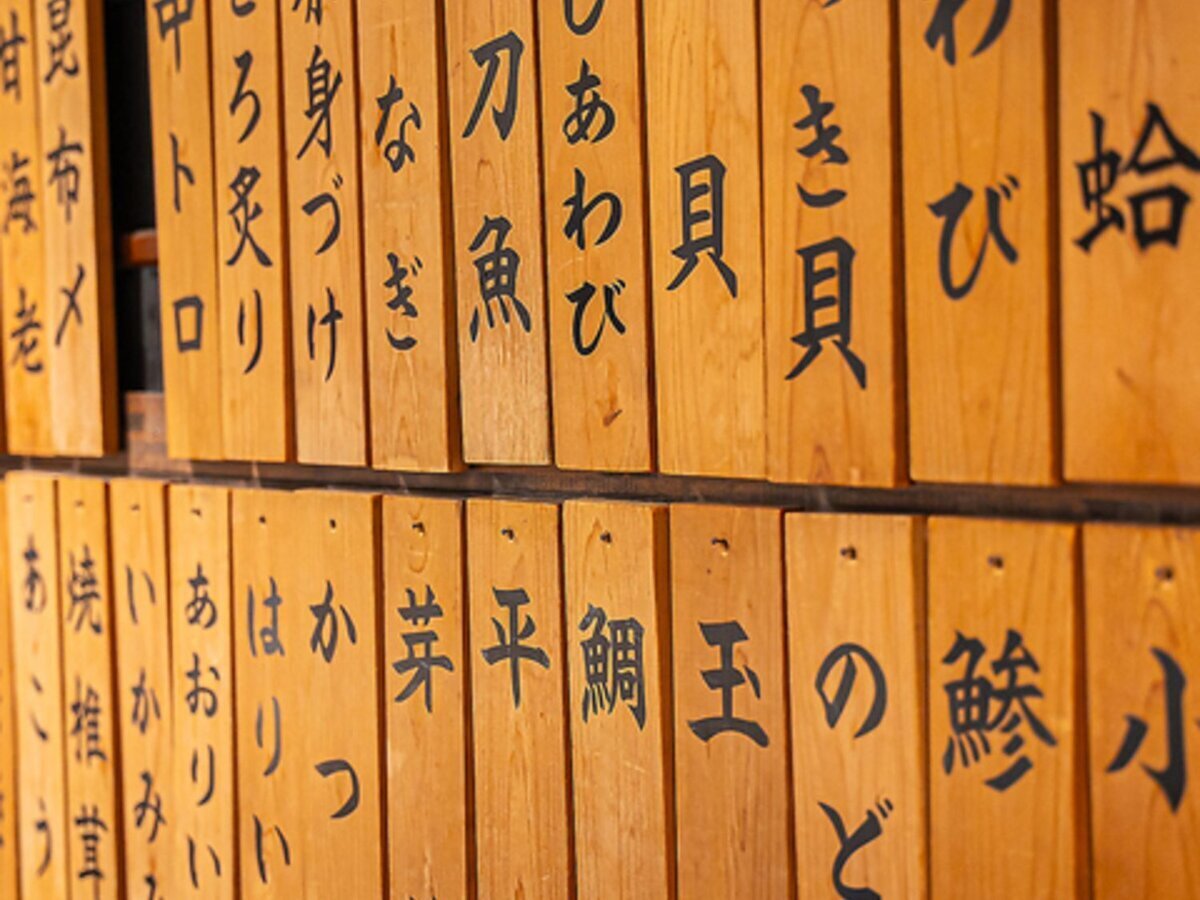 蛤
わび
き貝
貝
しあわび
刀魚
なぎ
赤身づけ
とろ炙り
中トロ
昆布〆
甘海老
小
鯵
のど
玉
鯛
平
芽
かつ
はりい
あおりい
いかみみ
焼椎茸
あこう